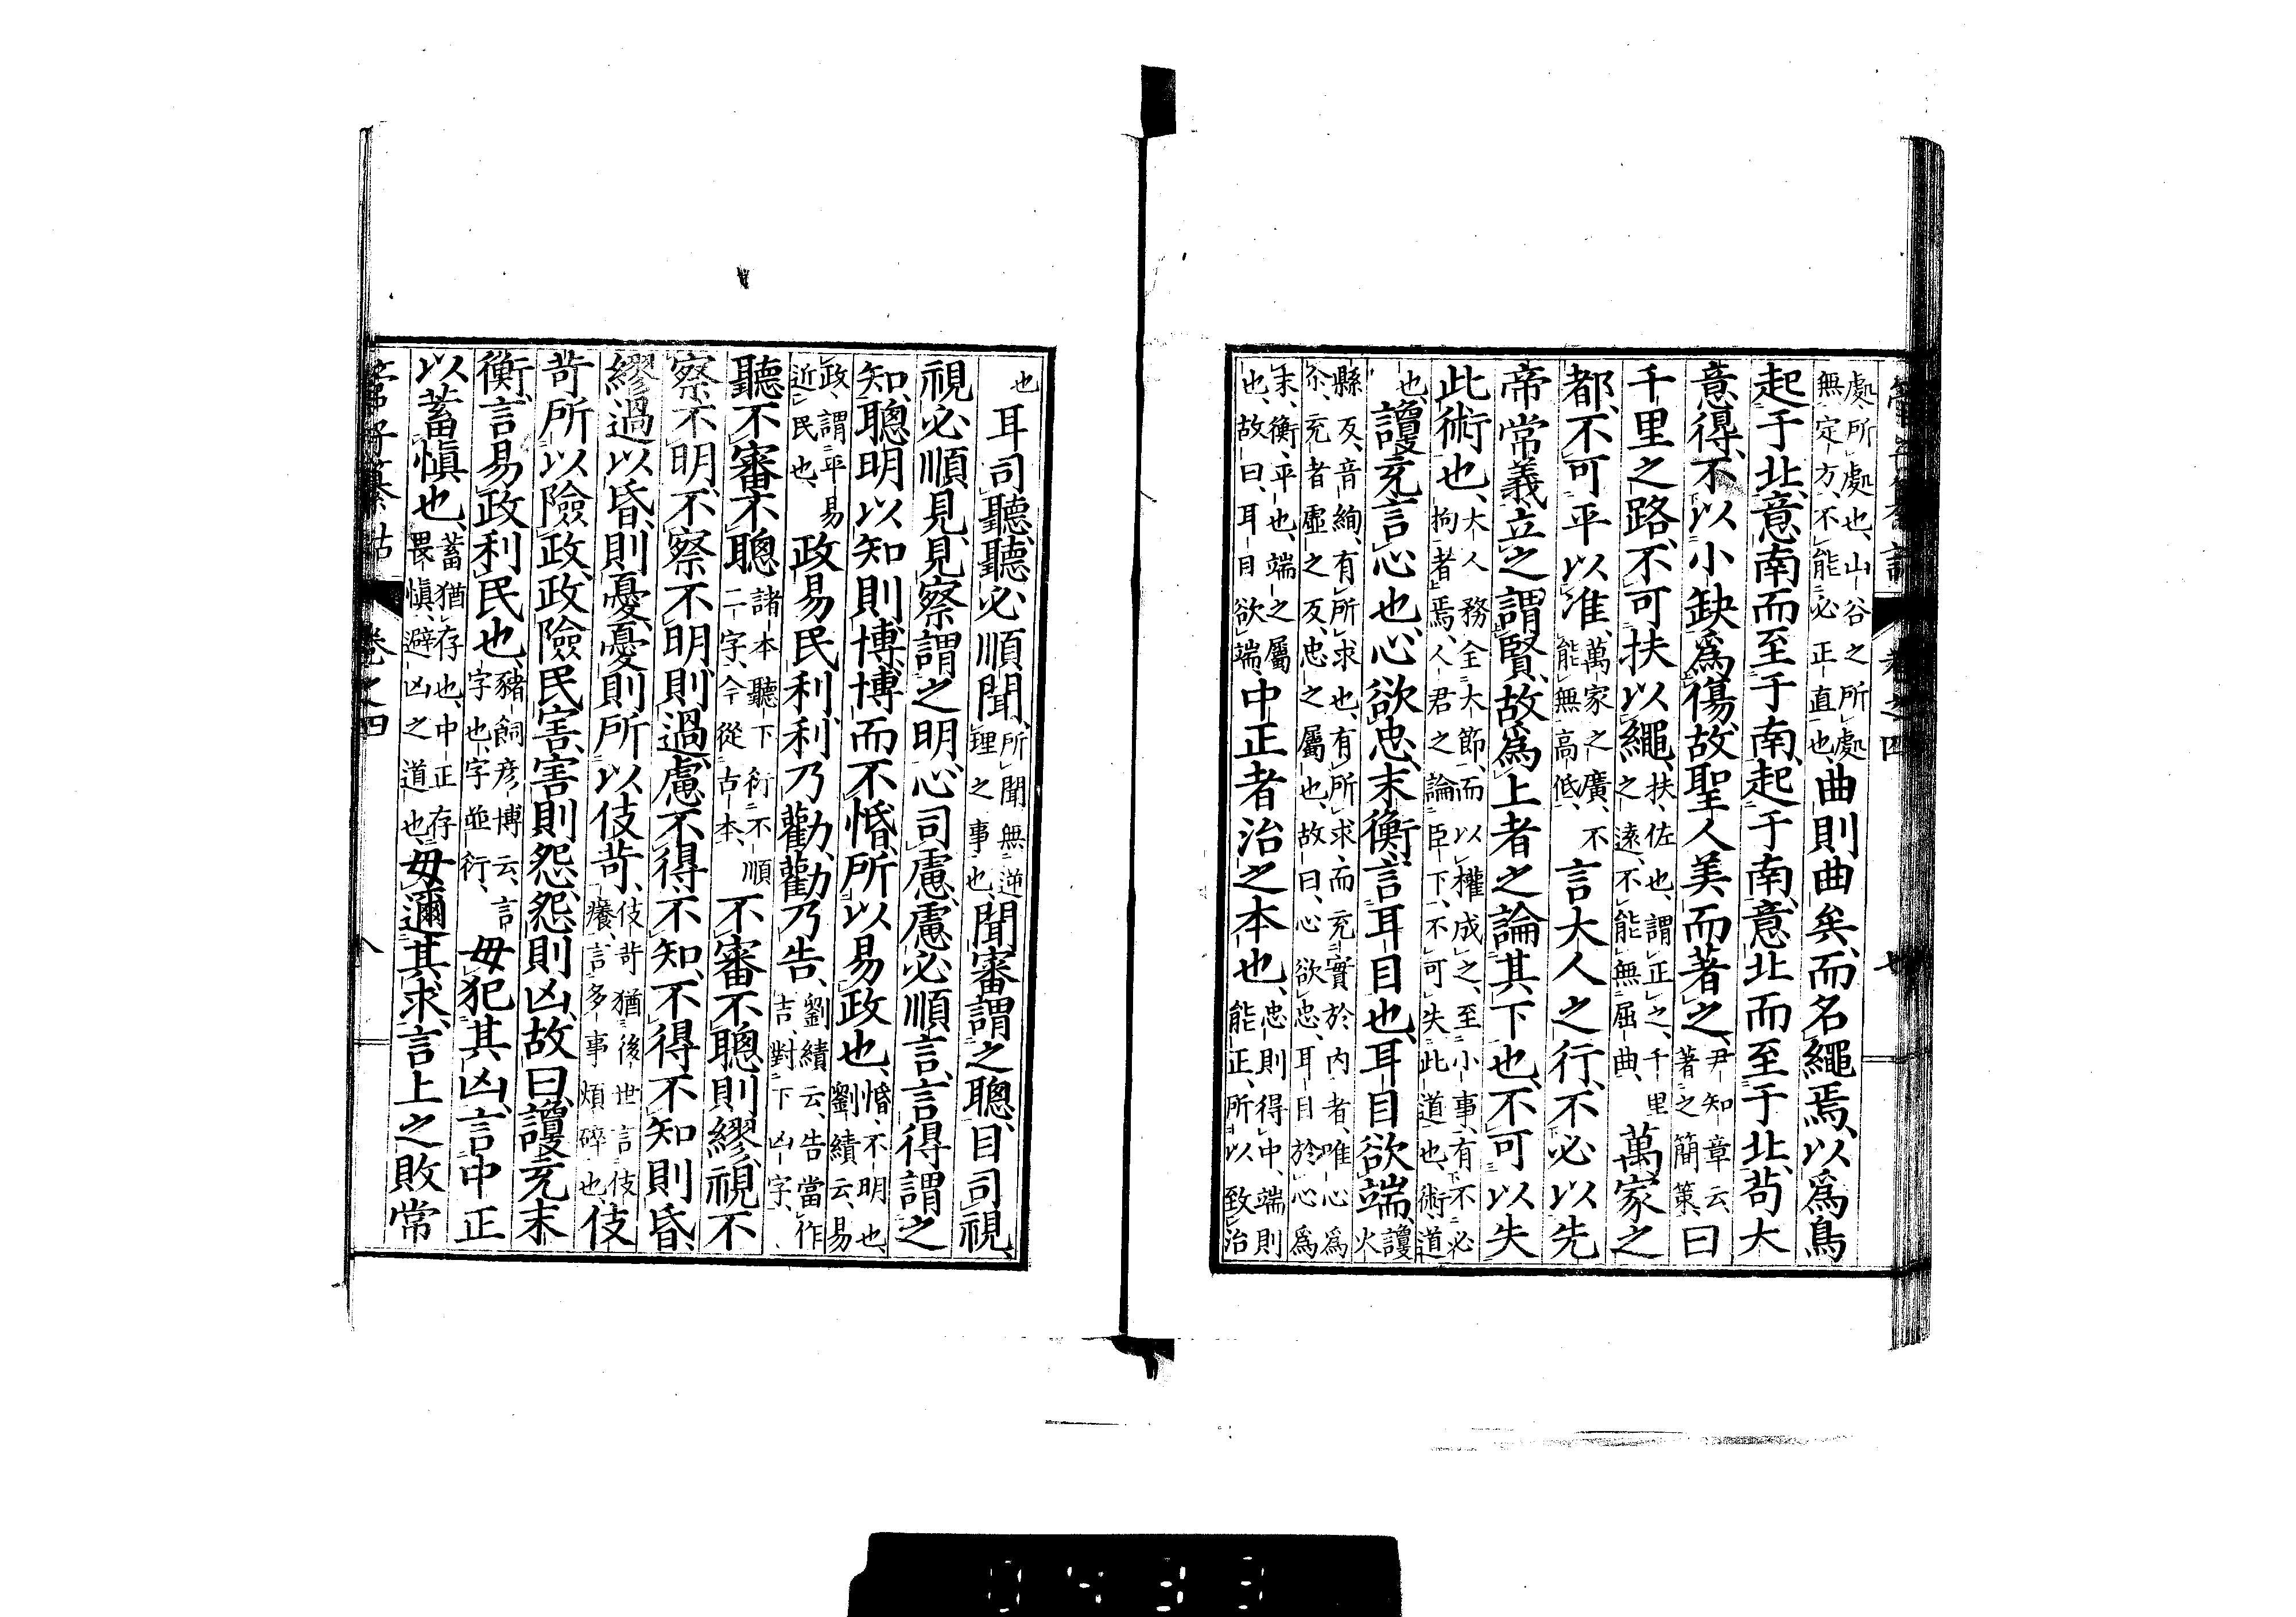 管子纂詁 卷之四
處、所處也、山谷之所處
無定方、不能必正直也、
曲則曲矣、而名繩焉、以爲鳥
起于北、意南而至于南、起于南、意北而至于北、苟大
意得、不以小缺爲傷、故聖人美而著之、
尹知章云、
著之簡策、
曰
千里之路、不可扶以繩、
扶、佐也、謂正之、千里
之遠、不能無屈曲、
萬家之
都、不可平以准、
萬家之廣、不
能無高低、
言大人之行、不必以先
帝常義立之謂賢、故爲上者之論其下也、不可以失
此術也、
大人務全大節、而以權成之、至小事、有不必
拘者焉、人君之論臣下、不可失此道也、術道
也、
讂充言心也、心欲忠、末衡、言耳目也、耳目欲端、
讂火
縣反、音絢、有所求也、有所求、而充實於内者、唯心爲
尒、充者虛之反、忠之屬也、故曰、心欲忠、耳目於心爲
末、衡、平也、端之屬
也、故曰、耳目欲端、
中正者治之本也、
忠則得中、端則
能正、所以致治
也
耳司聽、聽必順聞、
所聞無逆
理之事也、
聞審謂之聰、目司視、
視必順見、見察謂之明、心司慮、慮必順言、言得謂之
知、聰明以知則博、博而不惛、所以易政也、
惛、不明也、
劉績云、易
政、謂平易
近民也、
政易民利、利乃勸、勸乃告、
劉績云、告當作
吉、對下凶字、
聽不審不聰
諸本聽下衍不順
二字、今從古本、
不審不聰則繆、視不
察不明、不察不明則過、慮不得不知、不得不知則昏、
繆過以昏、則憂、憂則所以伎苛、
伎苛猶後世言伎
癢、言多事煩碎也、
伎
苛所以險政、政險民害、害則怨、怨則凶、故曰、讂充末
衡、言易政利民也、
豬飼彦博云、言
字也字並衍、
毋犯其凶、言中正
以蓄愼也、
蓄猶存也、中正存
畏愼、避凶之道也、
毋邇其求、言上之敗常
管子纂詁 卷之四